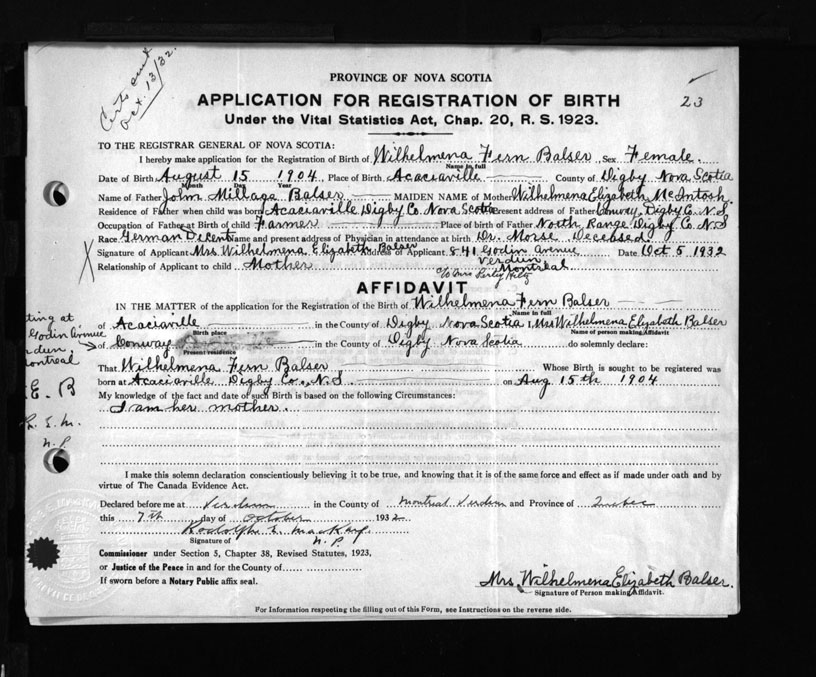 Certs sent
Oct. 13/32.
PROVINCE OF NOVA SCOTIA
APPLICATION FOR REGISTRATION OF BIRTH
23
Under the Vital Statistics Act, Chap. 20, R. S. 1923.
TO THE REGISTRAR GENERAL OF NOVA SCOTIA:
I hereby make application for the Registration of Birth of Wilhelmena Fern Balser, Sex Female.
Name in full
Date of Birth August 15 1904, Place of Birth Acaciaville County of Digby Nova Scotia
Month Day Year
Name of Father John Millage Balser MAIDEN NAME of Mother Wilhelmena Elizabeth McIntosh.
Residence of Father when child was born Acaciaville Digby Co. Nova Scotia Present address of Father Conway, Digby Co. N. S
Occupation of Father at Birth of child Farmer Place of birth of Father North Range Digby Co. N. S
Race German Decent Name and present address of Physician in attendance at birth Dr. Morse, Deceased
Signature of Applicant Mrs. Wilhelmena Elizabeth Balser Address of Applicant 841 Godin Avenue Date Oct 5 1932
Verdun
Relationship of Applicant to child Mother Montreal
c/o Mrs
AFFIDAVIT
IN THE MATTER of the application for the Registration of the Birth of Wilhelmena Fern Balser
Name in full
of Acaciaville in the County of Digby Nova Scotia I, Mrs Wilhelmena Elizabeth Balser
Birth place Name of person making Affidavit
of Conway in the County of Digby Nova Scotia do solemnly declare:
Present residence
ting at
Godin Avenue
dun,
ontreal
E. B
N. P.
That Wilhelmena Fern Balser Whose Birth is sought to be registered was
born at Acaciaville Digby Co., N. S. on Aug 15th 1904
My knowledge of the fact and date of such Birth is based on the following Circumstances:
I am her mother.
I make this solemn declaration conscientiously believing it to be true, and knowing that it is of the same force and effect as if made under oath and by
virtue of The Canada Evidence Act.
Declared before me at Verdun in the County of Montreal Verdun and Province of Quebec
this 7th day of October 1932
Rodolph L. MacKay.
Signature of N. P.
Commissioner under Section 5, Chapter 38, Revised Statutes, 1923,
or Justice of the Peace in and for the County of
If sworn before a Notary Public affix seal.
Mrs. Wilhelmena Elizabeth Balser.
Signature of Person making Affidavit.
For Information respecting the filling out of this Form, see Instructions on the reverse side.